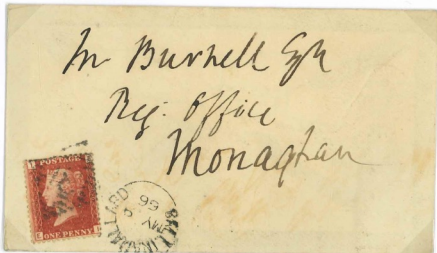 Burnell Esqr
Reg. Office
Monaghan
POSTAGE
ONE PENNY
MY
66